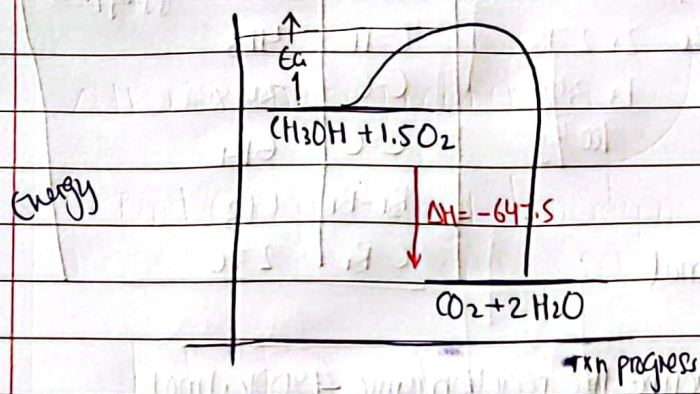 Ea
CH3OH + 1.5O2
Energy
ΔH = -647.5
CO2 + 2H2O
rxn progress